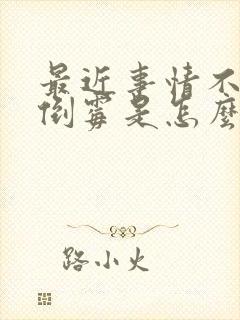 最近事情不
倒霉是怎麼
路小火